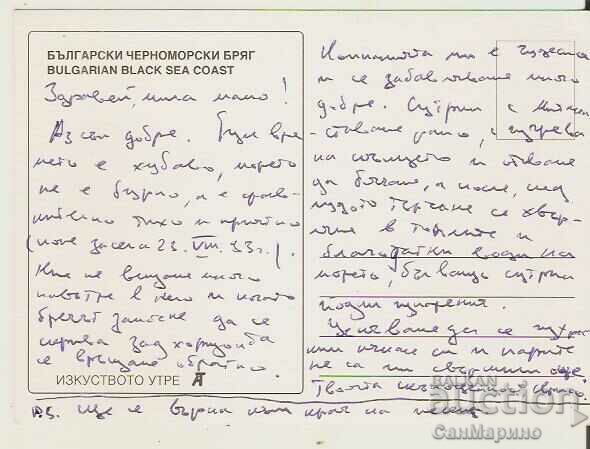 БЪЛГАРСКИ ЧЕРНОМОРСКИ БРЯГ
BULGARIAN BLACK SEA COAST
Здравей, мила мамо!
Аз съм добре. Тук вре-
мето е хубаво, морето
не е бурно, а е срав-
нително тихо и приятно
(поне засега 23. VIII. 93г.).
Ние не влизаме много
навътре в него и когато
брегът започне да се
скрива зад хоризонта
се връщаме обратно.
ИЗКУСТВОТО УТРЕ
Компанията ми е чудесна
и се забавляваме много
добре. Сутрин с
ставаме рано, с изгрева
на слънцето и отиваме
да бягаме, а после, след
лудото тичане се хвър-
ляме в топлите и
благодатни води на
морето, бълващо сутрин
йодни изпарения.
да се
ни и парите
не са ни свършили още.
Твоята
P.S. Ще се върна към края на
BALKAN
auction
СанМарино